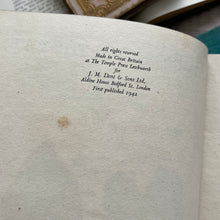 All rights reserved
Made in Great Britain
at The Temple Press Letchworth
for
J. M. Dent & Sons Ltd.
Aldine House Bedford St. London
First published 1942